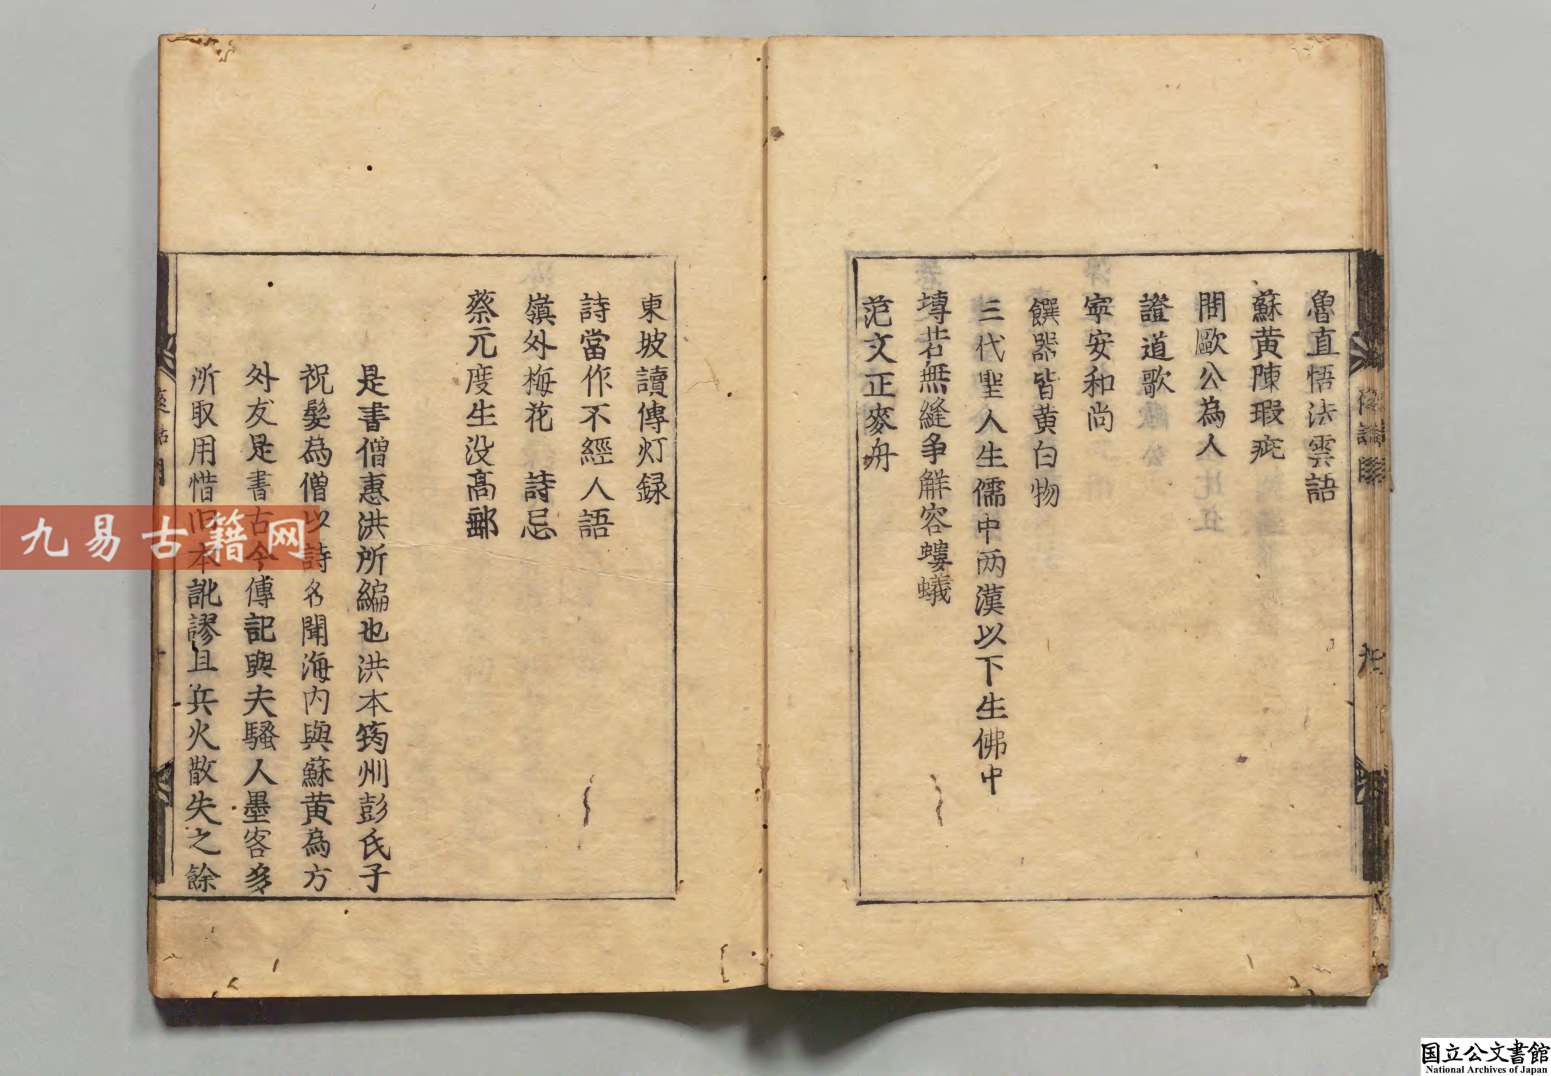 魯直悟法雲語
蘇黄陳瑕疵
問歐公為人
證道歌
寧安和尚
饌器皆黄白物
三代聖人生儒中两漢以下生佛中
塼若無縫争解容螻蟻
范文正麥舟
東坡讀傳灯録
詩當作不經人語
嶺外梅花 詩忌
蔡元度生没高郵
是書僧惠洪所編也洪本筠州彭氏子
祝髮為僧以詩名聞海内與蘇黄為方
外友是書古今傳記與夫騷人墨客多
所取用惜旧本訛謬且兵火散失之餘
九易古籍网
国立公文書館
National Archives of Japan